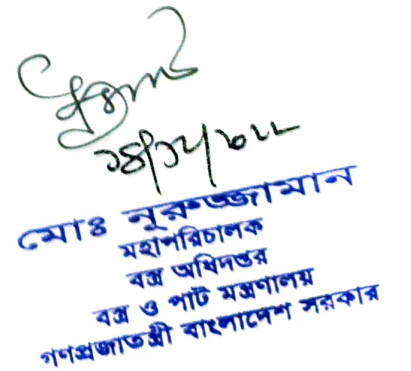 ২৪/১২/২০২২
মোঃ নূরুজ্জামান
মহাপরিচালক
বস্ত্র অধিদপ্তর
বস্ত্র ও পাট মন্ত্রণালয়
গণপ্রজাতন্ত্রী বাংলাদেশ সরকার